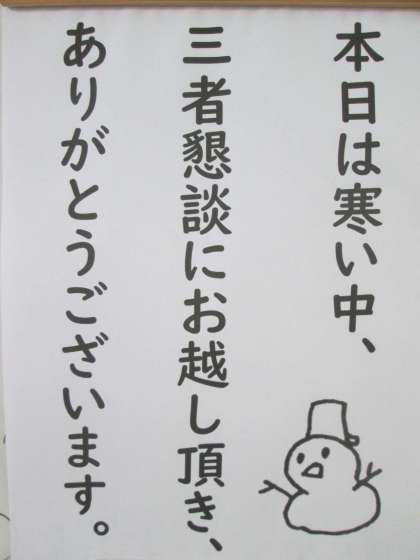 本日は寒い中、
三者懇談にお越し頂き、
ありがとうございます。